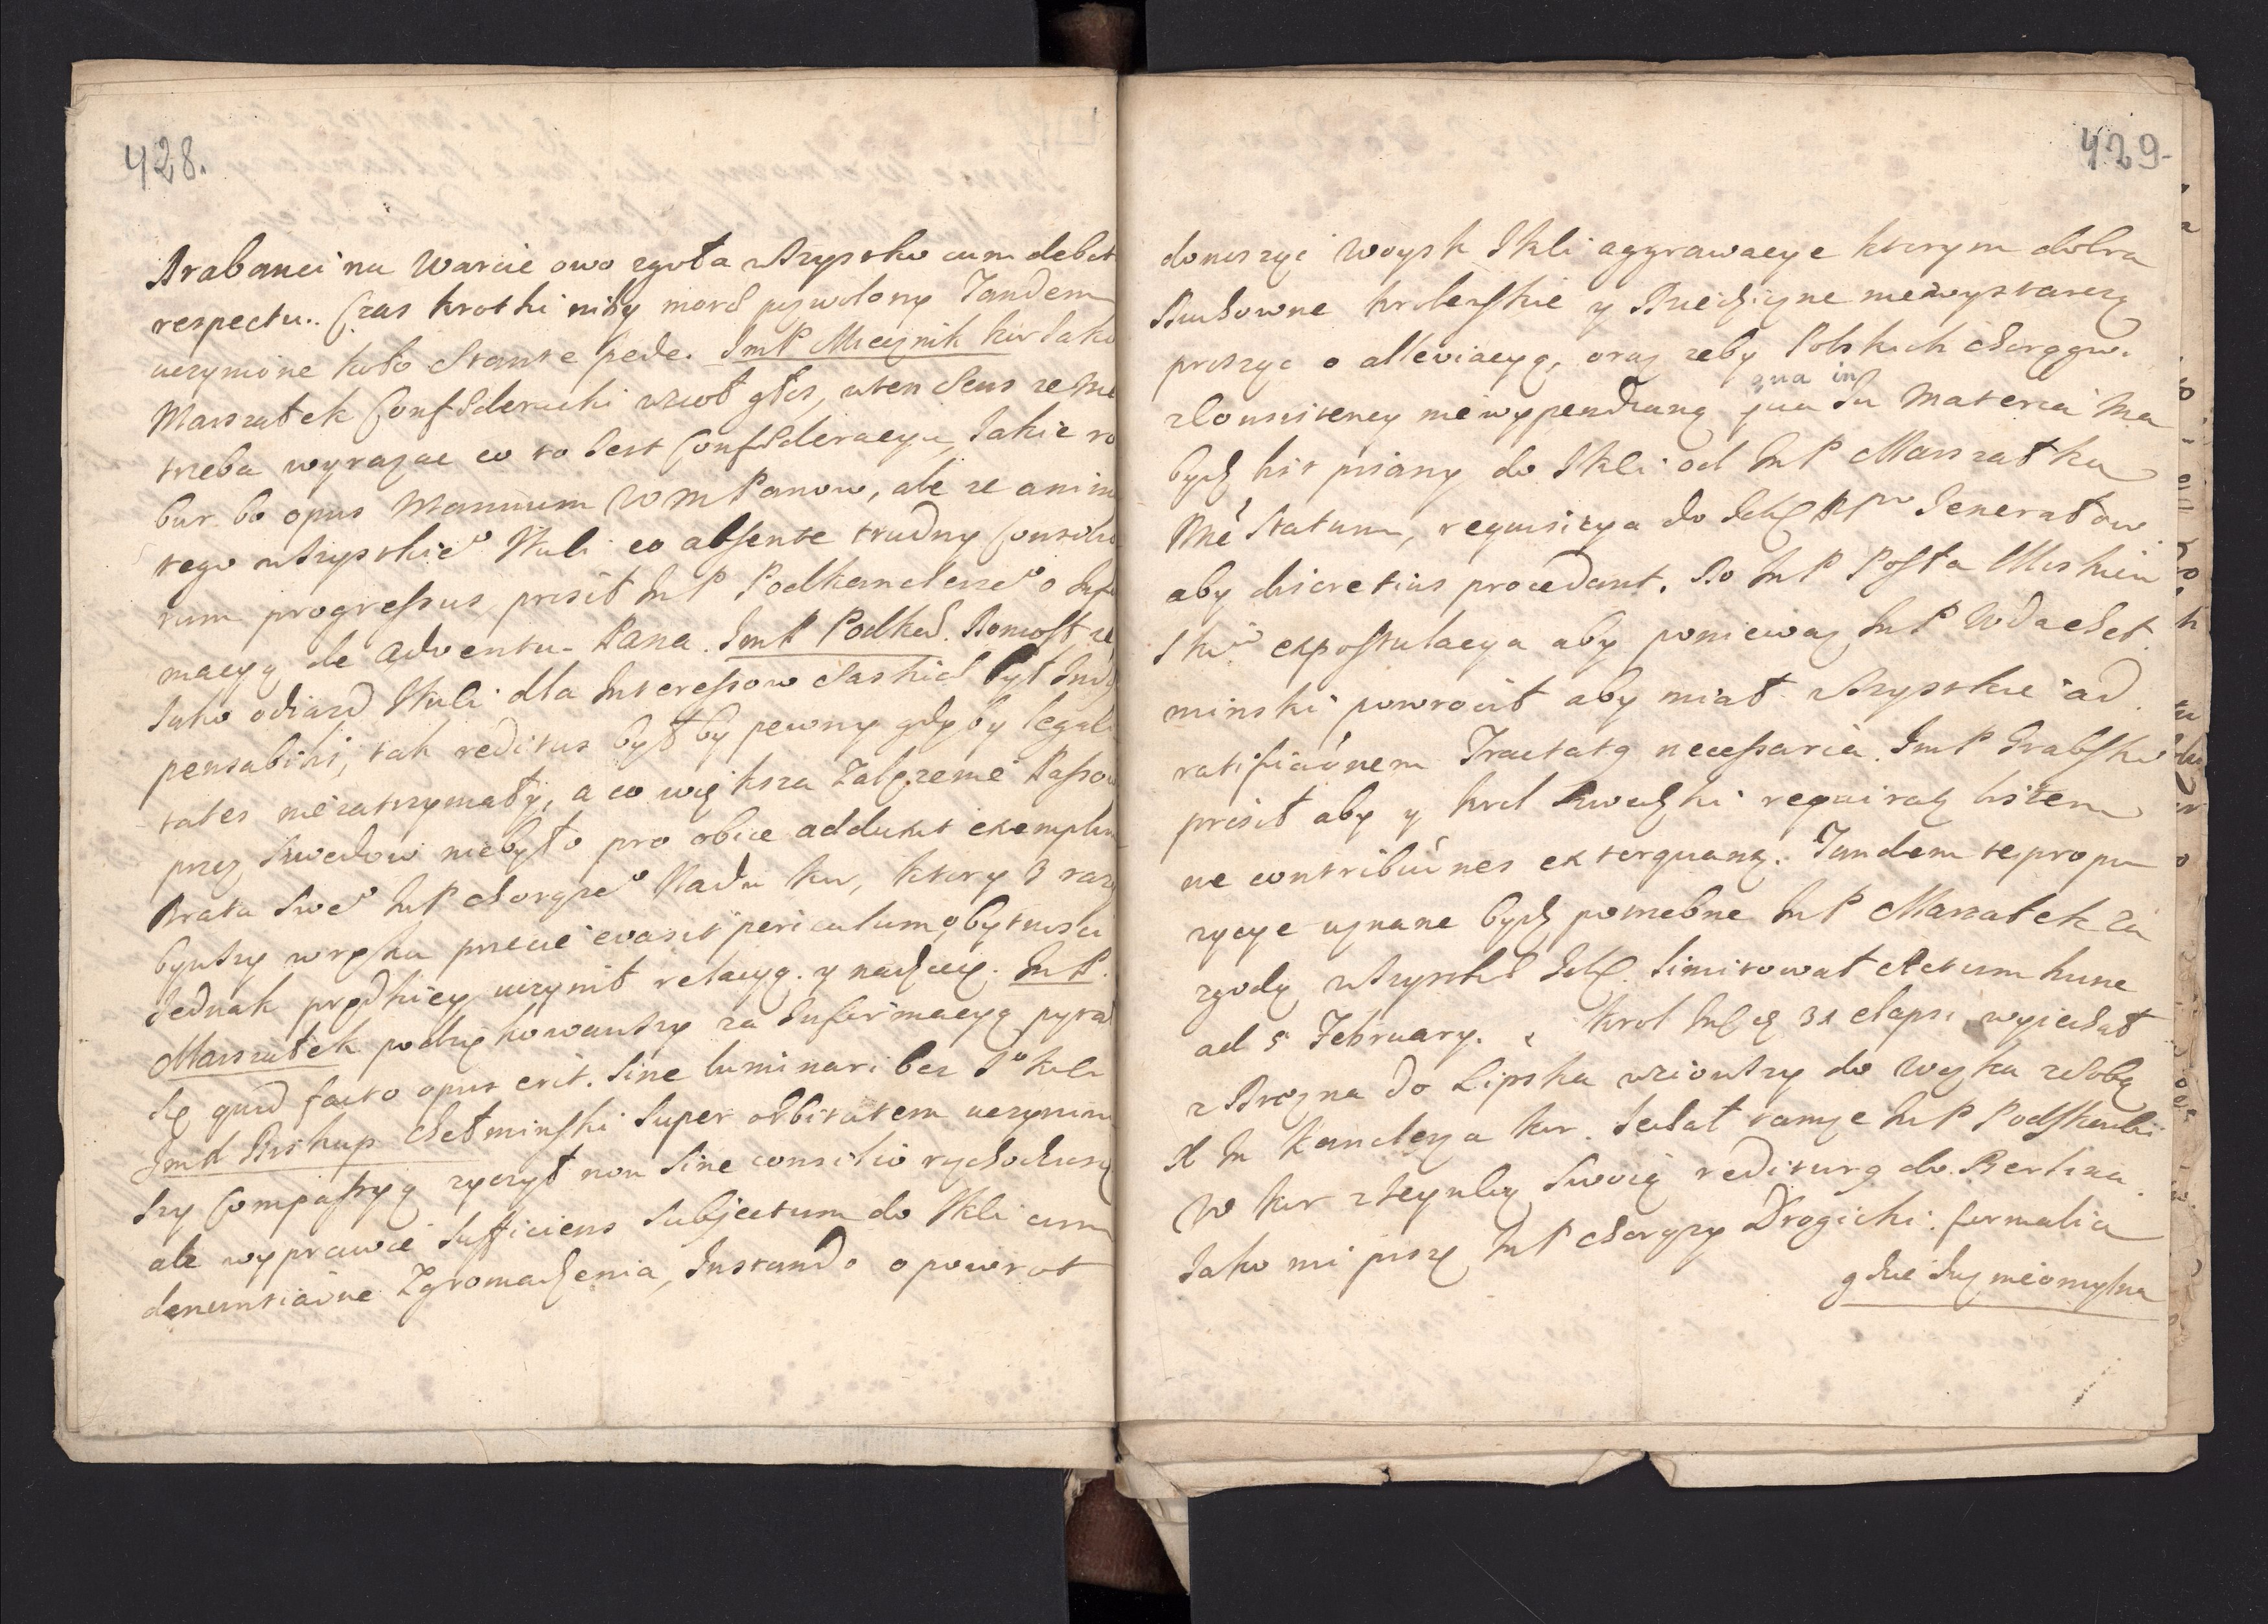 428.
Drabanci na Warcie owo zgoła wszystko cum debit
respectu. Czas krotki niby mord pozwolony Tandem
uczynione koło Stante pede. JmP Miecznik kor Jako
Marszałek Confoderacki wziął głos, w ten Sens ze nie
trzeba wyrazac co to Jest Confoderacya, Jakie ro
bur bo opus Manuum WM Panow, ale ze anim
tego wszystkieo Kuli eo absente trudny Consilio
rum progressus prosił JmP Podkanclerzeo o Infor
macyą de adventu Pana. JmP Podkacl. Doniosł ze
Jako odiazd Kuli dla Interessow Saskich był Indis
pensabilis, tak reditus byłby pewny gdyby legali
tates nie zatrzymały, a co większa Zalęzenie Passow
przez Szwedow niebyło pro obice adduxit exemplum
Brata Sweo JmP Chorążeo Nadw kor, ktory 3 razy
bywszy w ręku przecie evasit periculum, o bytności
Jednak prędkiey uczynił relacyą y nadzieię. JmP.
Marszałek podziękowawszy za Informacyą pytał
Się quid facto opus erit. Sine luminari bez So kuli
JmX Biskup Chełminski Super orbitatem uczyniw
szy Compassyą zyczył non Sine consilio
ale wyprawic Sufficiens Subjectum do Kkli cum
denuntiaone Zgromadzenia, Instando o powrot
429.
donosząc Woysk Jkli aggrawacye ktorym dobra
Duchowne krolewskie y Dziedziczne niewystarczą
prosząc o alleviacyą, oraz zeby Polskich Chorągwi
z Consistency nie wypendzaną qua in
qua In Materia Ma
bydz list pisany do Jkli od JmP Marszałka
Me Statum, requisicya do Ich Generałow
aby discretius procedant. Do JmP Posła Moskiew
Skieo expostulacya aby poniewaz JmP Wda Cheł
minski powrocił aby miał wszystkie ad
ratificaonem Tractatq necessaria. JmP Grabski
prosił aby y krol Szwedzki requiratq listem
ne contribuones exterquanq. Tandem te propo
zycye uznane bydz potrzebne JmP Marszałek za
zgodą wszystkich Ich limitował Actum hunc
ad 5 February. Krol Jmc 31 elapsi wyiechał
z Drezna do Lipska wziowszy do Węzka z Sobą
X Jm Kanclerza kor. Jechał tamze JmP Podskarbi
W kor z teyulcy Swoią redituro do Berlina.
Jako mi pisze JmP Chorąży Drogicki. formalia
gdzie Się nieomylna